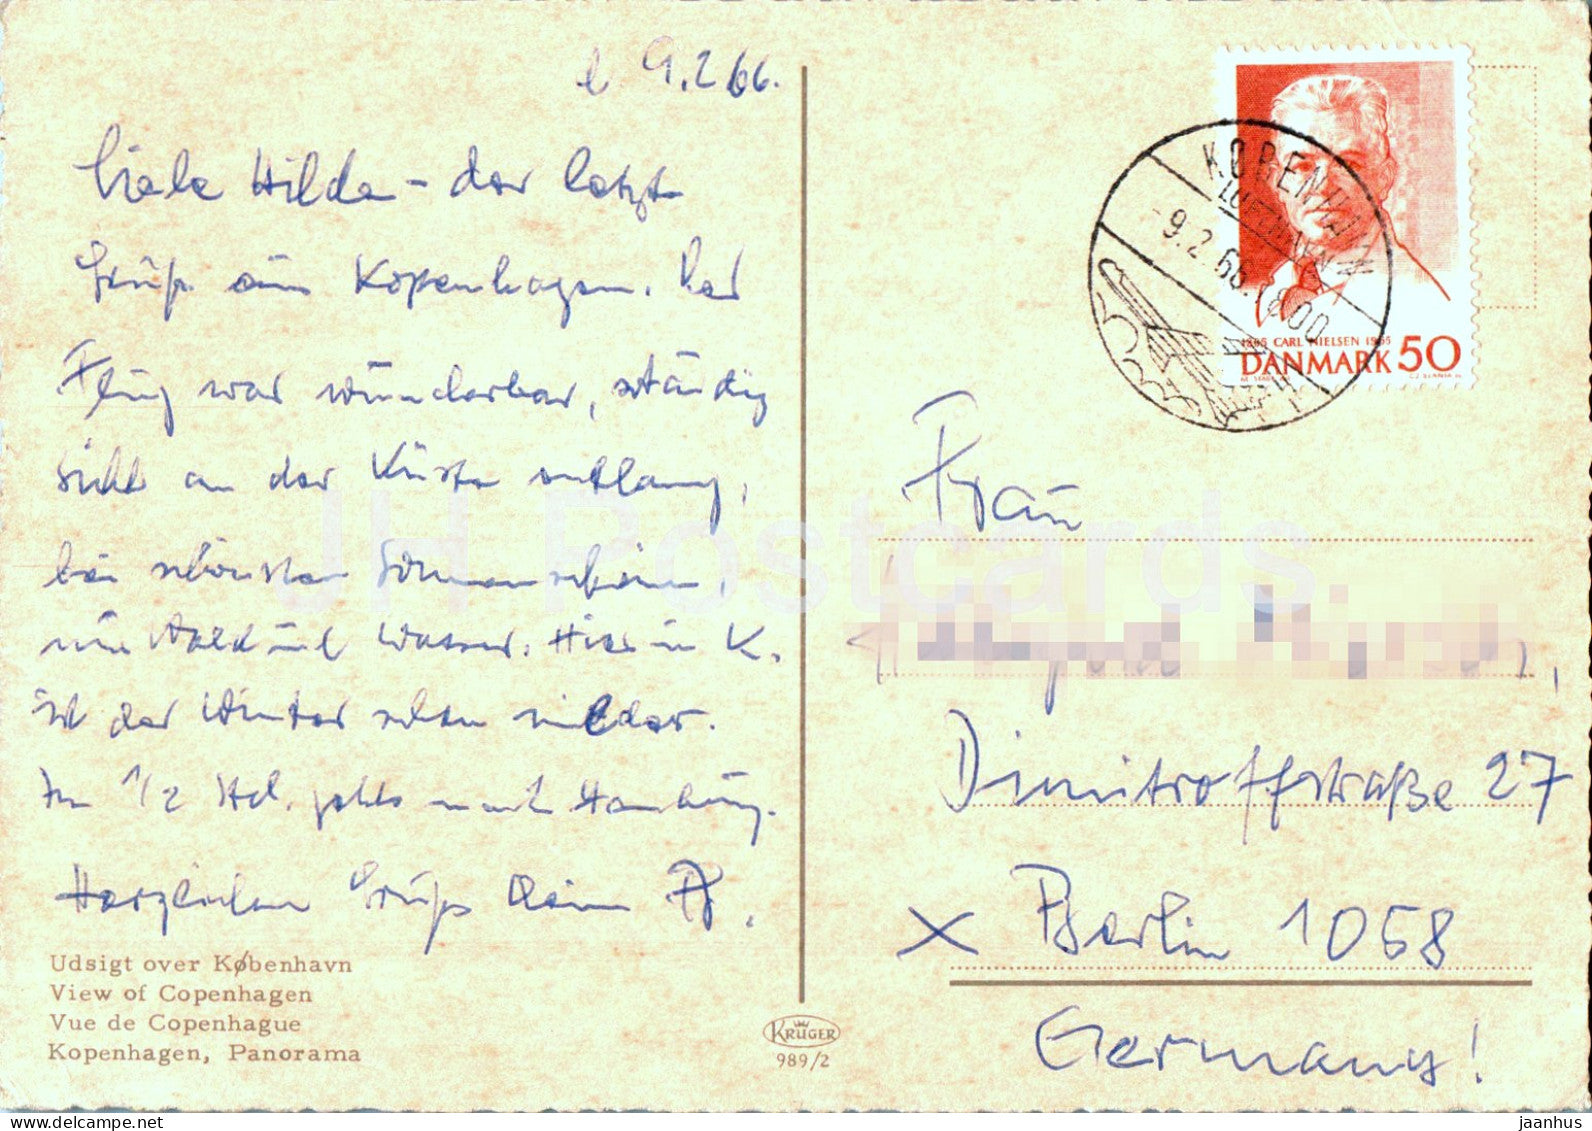 9.2.66.
Liebe Hilde – der letzte
Gruß aus Kopenhagen. Der
Flug war wunderbar, ständig
Sicht an der Küste entlang,
bei schönstem Sonnenschein,
nur Wald und Wasser. Hier in K.
ist der Winter schon milder.
In 1/2 Std. geht's nach Hamburg.
Herzlichen Gruß Dein
Udsigt over København
View of Copenhagen
Vue de Copenhague
Kopenhagen, Panorama
KRÜGER
989/2
KØBENHAVN
LUFTHAVN
-9.2.66.18.00
1865 CARL NIELSEN 1965
DANMARK 50
Frau
Dimitroffstraße 27
X Berlin 1058
Germany!
JH Postcards
delcampe.net
jaanhus